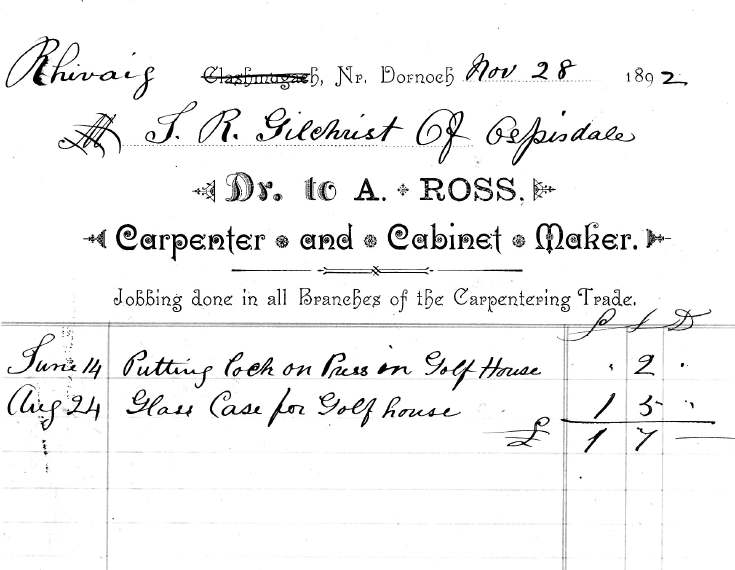 Rhivaig Clashmugach, Nr. Dornoch Nov 28 1892
T. R. Gilchrist Of Ospisdale
Dr. to A. ROSS.
Carpenter and Cabinet Maker.
Jobbing done in all Branches of the Carpentering Trade.
£ s D
June 14 Putting lock on Press in Golf House " 2 "
Aug 24 Glass Case for Golf house 1 5 "
£ 1 7 —